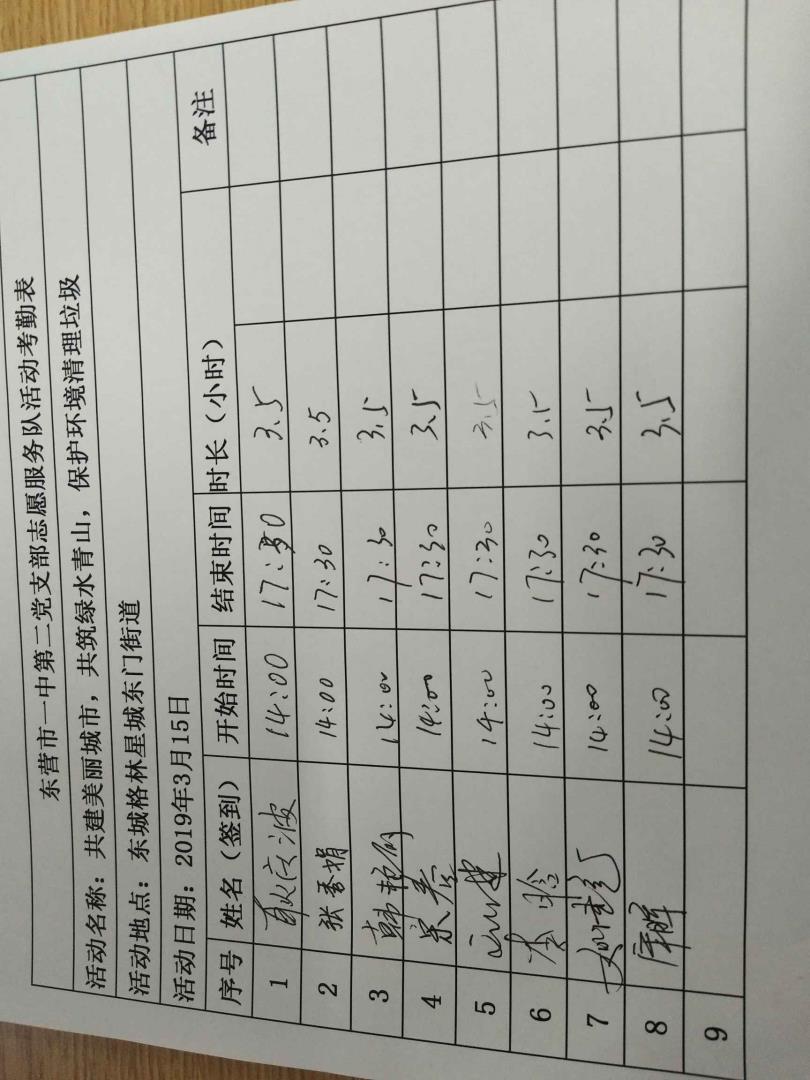 东营市一中第二党支部志愿服务队活动考勤表
活动名称：共建美丽城市，共筑绿水青山，保护环境清理垃圾
活动地点：东城格林星城东门街道
活动日期：2019年3月15日
序号 姓名（签到） 开始时间 结束时间 时长（小时） 备注
1 14:00 17:30 3.5
2 张秀娟 14:00 17:30 3.5
3 韩艳丽 14:00 17:30 3.5
4 14:00 17:30 3.5
5 14:00 17:30 3.5
6 李晗 14:00 17:30 3.5
7 14:00 17:30 3.5
8 14:00 17:30 3.5
9